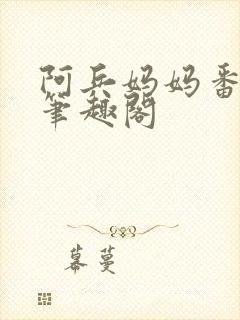 阿兵妈妈番
笔趣阁
幕蔓